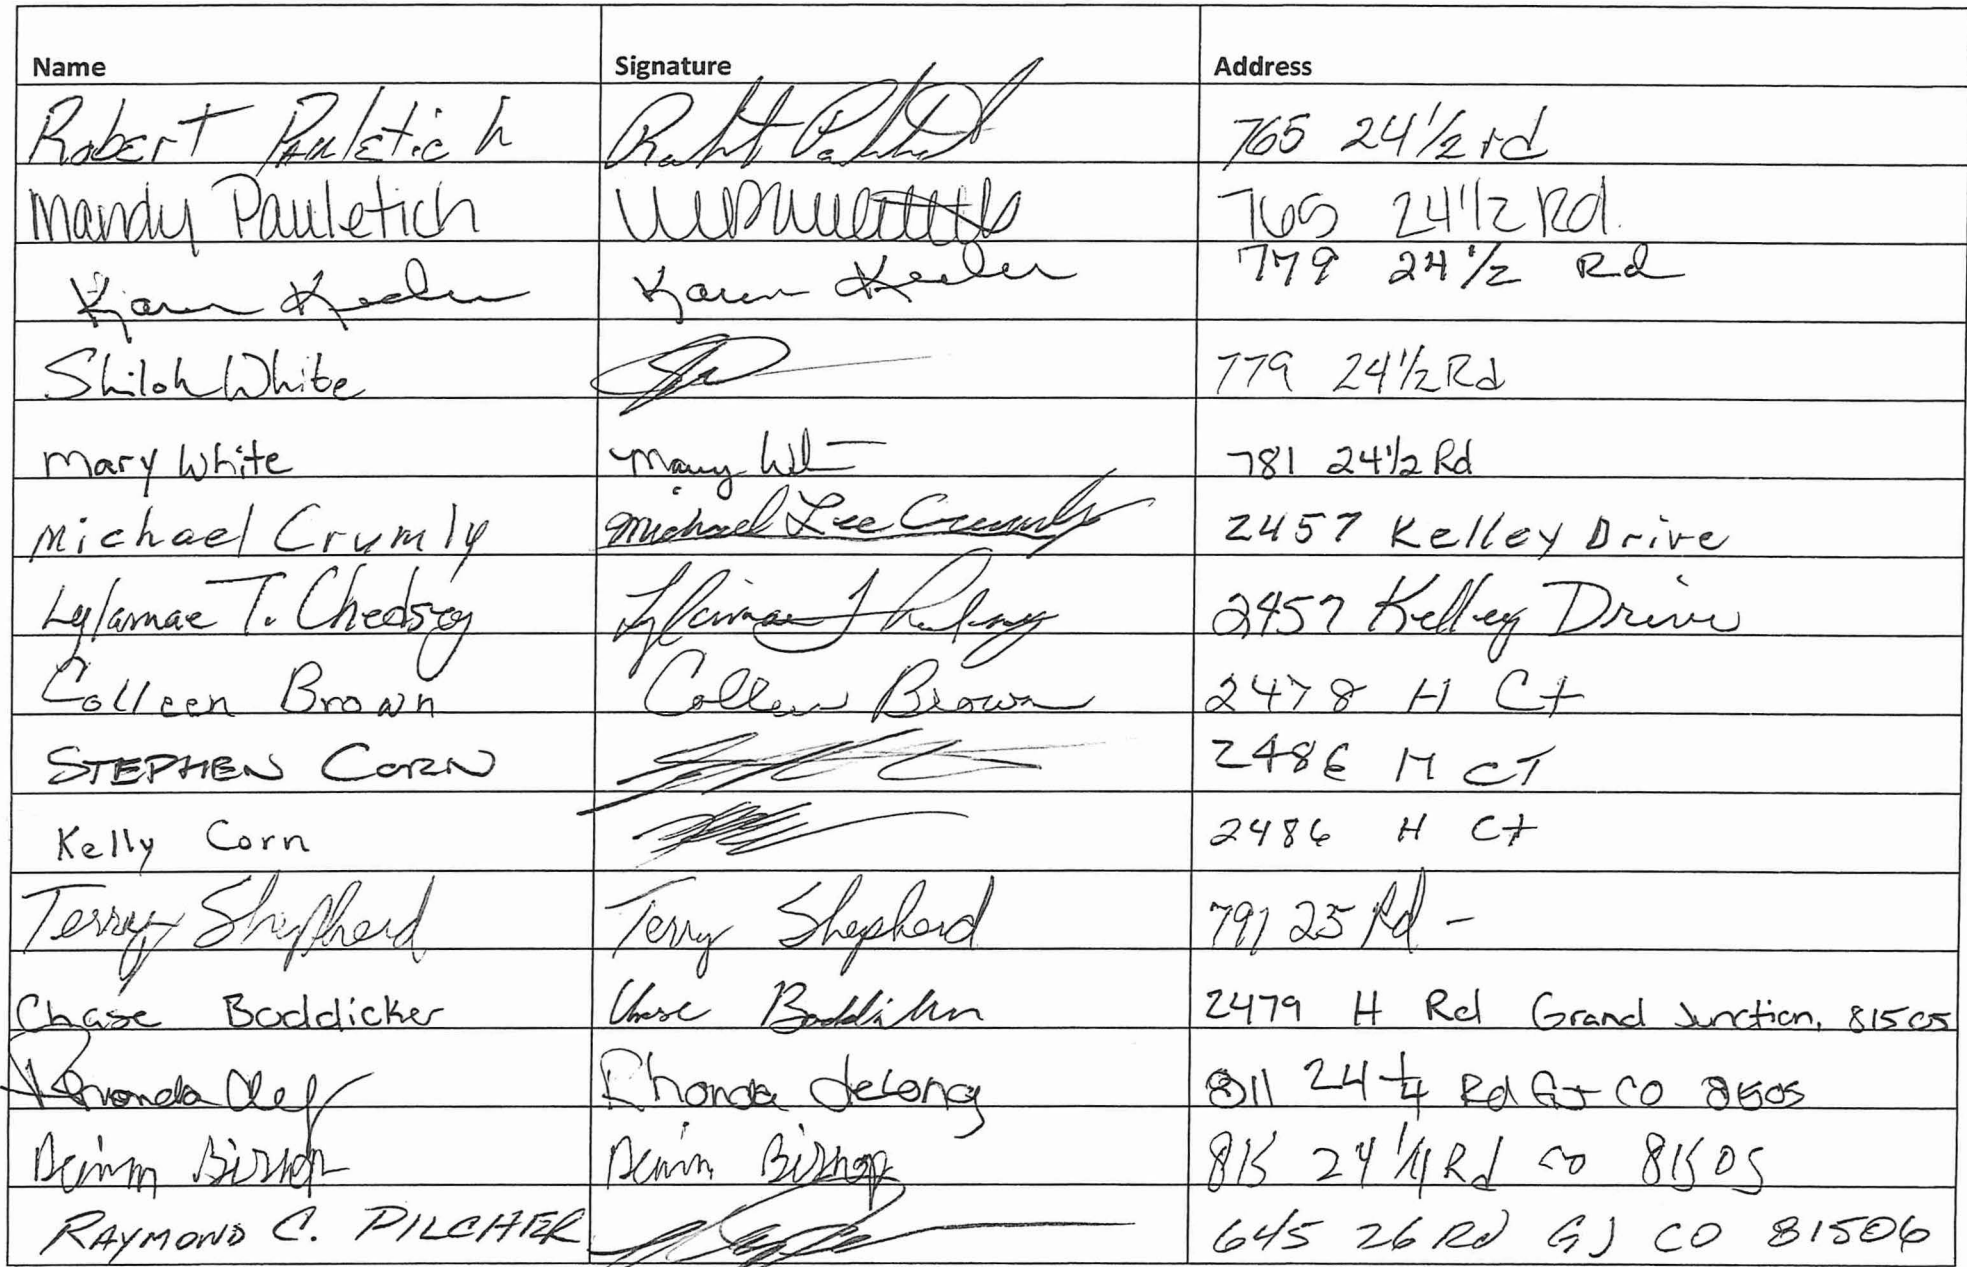 Name Signature Address
Robert Pauletich 765 24 1/2 rd
Mandy Pauletich 765 24 1/2 Rd.
Karen Keeler Karen Keeler 779 24 1/2 Rd
Shiloh White 779 24 1/2 Rd
Mary White Mary 781 24 1/2 Rd
Michael Crumly Michael Lee Crumly 2457 Kelley Drive
Lylamae T. Chedsey Lylamae T Chedsey 2457 Kelley Drive
Colleen Brown Colleen Brown 2478 H Ct
STEPHEN CORN 2486 H CT
Kelly Corn 2486 H Ct
Terry Shepherd Terry Shepherd 791 25 Rd -
Chase Boddicker Chase Boddicker 2479 H Rd Grand Junction, 81505
Rhonda Rhonda DeLong 811 24 1/4 Rd GJ CO 81505
Bishop Bishop 815 24 1/4 Rd CO 81505
RAYMOND C. PILCHER 645 26 Rd GJ CO 81506